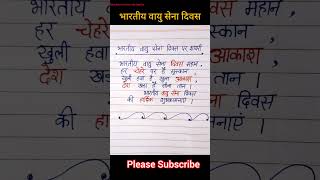 भारतीय वायु सेना दिवस
भारतीय वायु सेना दिवस पर शायरी
भारतीय वायु सेना दिवस महान,
हर चेहरे पर है मुस्कान ,
खुली हवा है खुला आकाश ,
देश खड़ा है सीना तान
भारतीय वायु सेना दिवस
की हार्दिक शुभकामनाएं ।
Please Subscribe